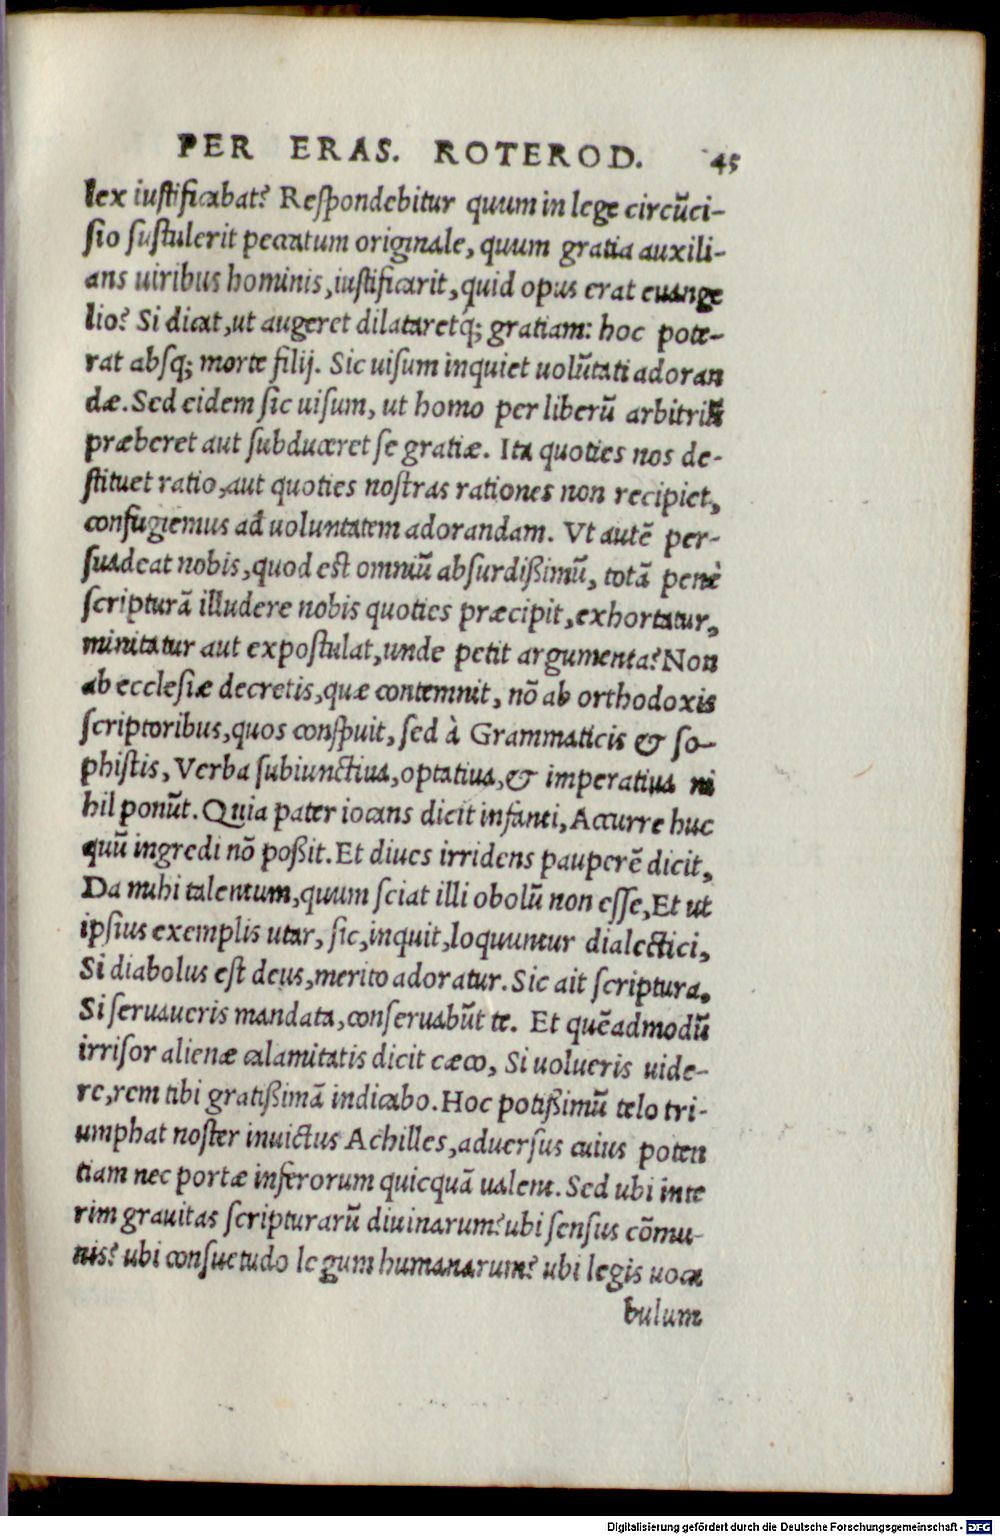 PER ERAS. ROTEROD. 45
lex iustificabat? Respondebitur quum in lege circũci-
sio sustulerit peccatum originale, quum gratia auxili-
ans uiribus hominis, iustificarit, quid opus erat euange
lio? Si dicat, ut augeret dilataretq́; gratiam: hoc pote-
rat absq; morte filij. Sic uisum inquiet uolũtati adoran
dæ. Sed eidem sic uisum, ut homo per liberũ arbitriũ
præberet aut subduceret se gratiæ. Ita quoties nos de-
stituet ratio, aut quoties nostras rationes non recipiet,
confugiemus ad uoluntatem adorandam. Vt autẽ per-
suadeat nobis, quod est omniũ absurdißimũ, totã penè
scripturã illudere nobis quoties præcipit, exhortatur,
minitatur aut expostulat, unde petit argumenta? Non
ab ecclesiæ decretis, quæ contemnit, nõ ab orthodoxis
scriptoribus, quos conspuit, sed à Grammaticis & so-
phistis, Verba subiunctiua, optatiua, & imperatiua ni
hil ponũt. Quia pater iocans dicit infanti, Accurre huc
quũ ingredi nõ poßit. Et diues irridens pauperẽ dicit,
Da mihi talentum, quum sciat illi obolũ non esse, Et ut
ipsius exemplis utar, sic, inquit, loquuntur dialectici,
Si diabolus est deus, merito adoratur. Sic ait scriptura,
Si seruaueris mandata, conseruabũt te. Et quẽadmodũ
irrisor alienæ calamitatis dicit cæco, Si uolueris uide-
re, rem tibi gratißimã indicabo. Hoc potißimũ telo tri-
umphat noster inuictus Achilles, aduersus cuius poten
tiam nec portæ inferorum quicquã ualent. Sed ubi inte
rim grauitas scripturarũ diuinarum? ubi sensus cõmu-
nis? ubi consuetudo legum humanarum? ubi legis uoca
bulum
Digitalisierung gefördert durch die Deutsche Forschungsgemeinschaft - DFG